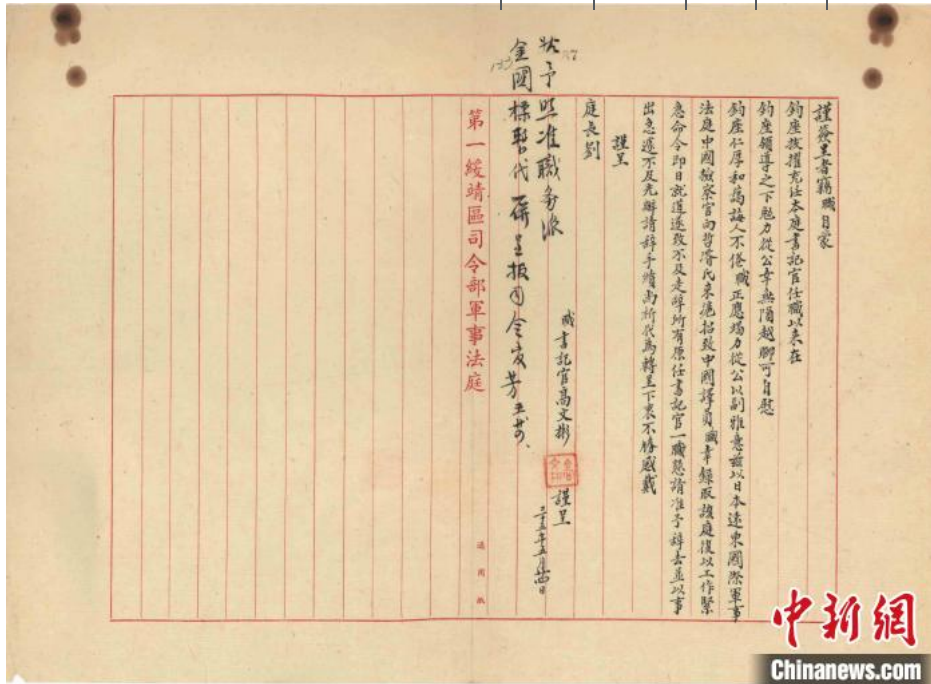 謹簽呈者竊職自蒙
鈞座拔擢充任本庭書記官任職以來在
鈞座領導之下勉力從公幸無隕越聊可自慰
鈞座仁厚和藹誨人不倦職正應竭力從公以副雅意茲以日本遠東國際軍事
法庭中國檢察官向哲濬氏來滬招致中國譯員職幸錄取該庭復以工作緊
急命令即日就道遂致不及走辭所有原任書記官一職懇請准予辭去並以事
出急遽不及先辦請辭手續尚祈代為轉呈下衷不勝感戴
謹呈
庭長劉
職書記官高文彬
謹呈
三十五年五月廿四日
予照准職務派
金國樑暫代併呈報司令
第一綏靖區司令部軍事法庭
通用紙
中新網
Chinanews.com